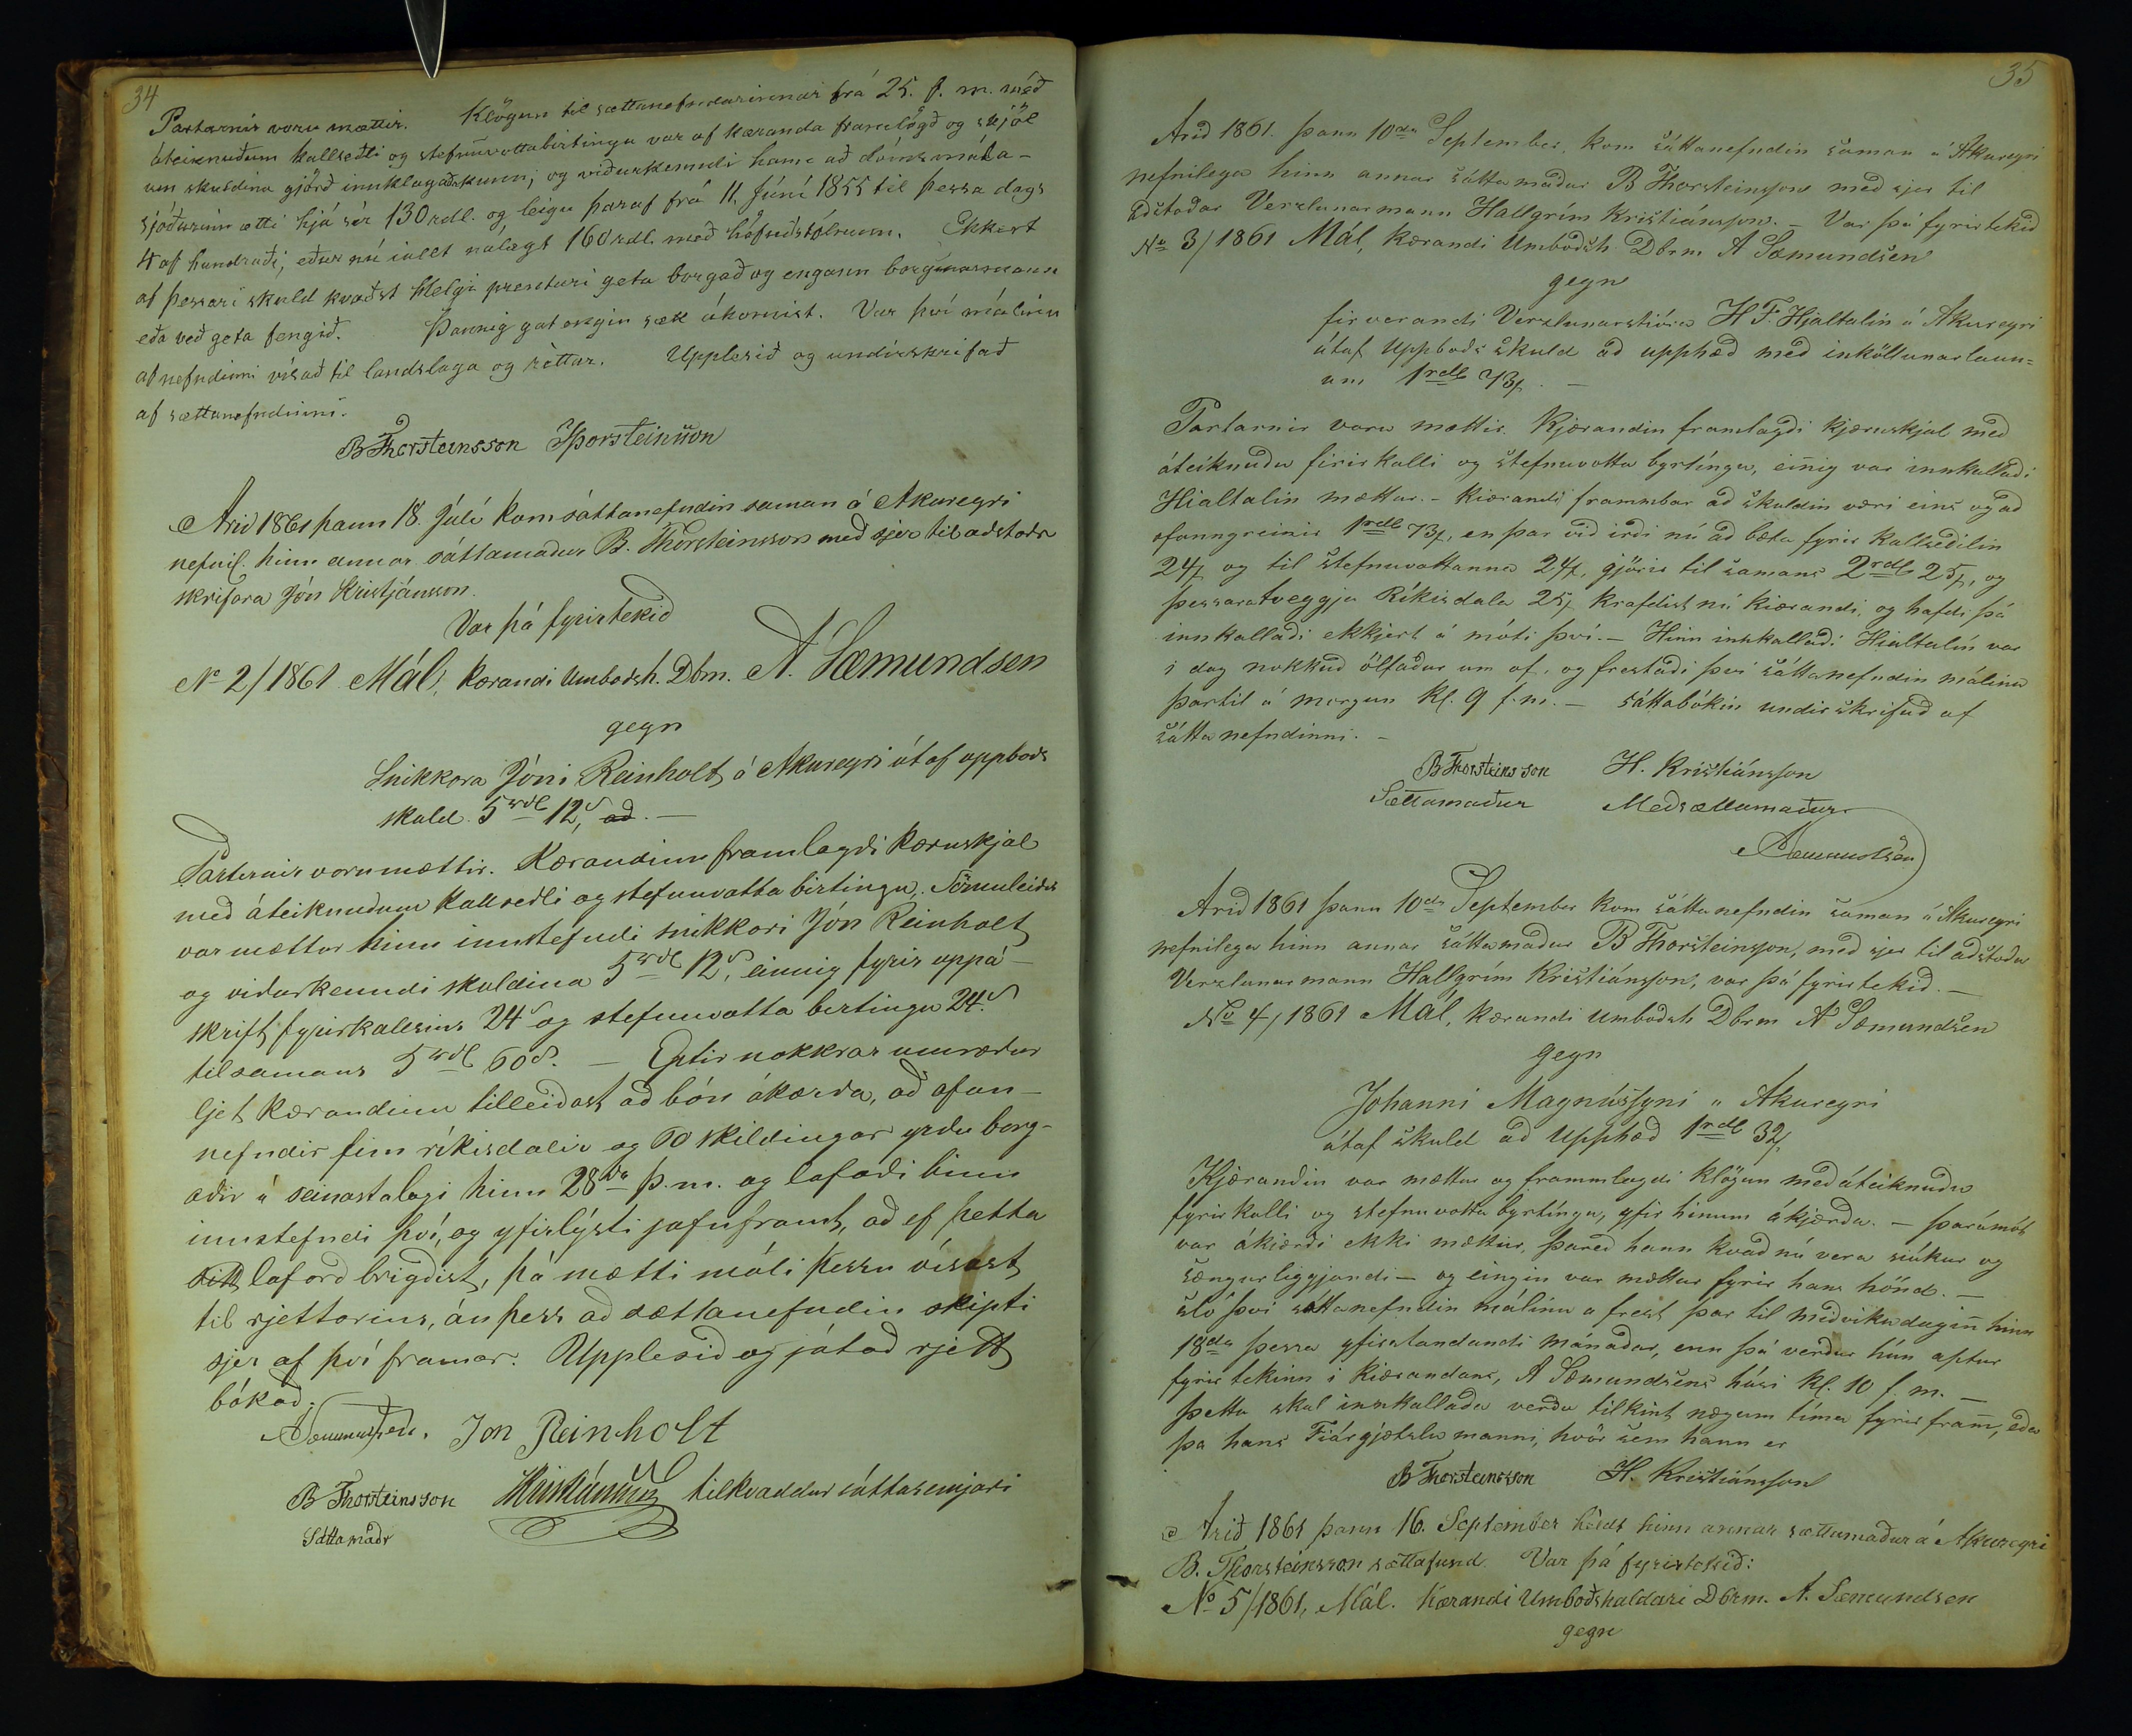 34
Partarnir voru mættir. Klögun til sættanefndarinnar frá 25. f. m. með
áteiknuðum kallseðli og stefnuvottabirtingu var af kæranda framlögð og skjöl
um skuldina gjörð innklagaða kunn; og viðurkenndi hann að dómsmála-
sjóðurinn ætti hjá sér 130 rdl. og leigu þaraf frá 11. Júní 1855 til þessa dags
4 af hundraði; eður nú í allt nálægt 160 rdl. með höfuðstólnum. Ekkert
af þessari skuld kvaðst Helgi prentari geta borgað og engann borgunarmann
eða veð geta fengið. Þannig gat engin sætt ákomist. Var því málinu
af nefndinni vísað til landslaga og réttar. Upplesið og undirskrifað
af sættanefndinni.
B Thorsteinsson JÞorsteinsson
Arið 1861 þann 18. Júlí kom sáttanefndin saman á Akureyri
nefnil. hinn annar sáttamaður B. Thorsteinsson með sjer til aðstoðar
skrifara Jón Kristjánsson.
Var þá fyrirtekið
No 2/1861 Mál, kærandi Umboðsh. Dbm. A. Sæmundsen
gegn
Snikkara Jóni Reinholt á Akureyri útaf uppboðs
skuld 5 rdl 12 s, að. —
Partarnir voru mættir. Kærandinn framlagði kæruskjal
með áteiknuðum kallseðli og stefnuvotta birtingu. Sömuleiðis
var mættur hinn innstefndi snikkari Jón Reinholt
og viðurkenndi skuldina 5 rdl 12 s, einnig fyrir uppá-
skrift fyrirkallsins 24 s og stefnuvotta birtingu 24 s
tilsamans 5 rdl 60 s. — Eptir nokkrar umræður
ljet kærandinn tilleiðast að bón ákærða, að ofan-
nefndir fim ríkisdalir og 60 skildingar yrðu borg-
aðir í seinastalagi hinn 28da þ. m. og lofaði hinn
innstefndi því, og yfirlýsti jafnframt, að ef þetta
sitt loforð brigðist, þá mætti máli þessu vísast
til rjettarins, án þess að sættanefndin skipti
sjer af því framar. Upplesið og játað rjett
bókað.
ASæmundsen. Jon Reinholt
B Thorsteinsson JKristjánsson tilkvaddur sáttasemjari
Sáttamaðr
35
Arid 1861. þann 10da September, kom sáttanefndin saman á Akureyri
nefnilega hinn annar sáttamadur B Thorsteinsson med sjer til
adstodar Verzlunarmann Hallgrím Kristiánsson. — Var þá fyrirtekid
No 3/1861 Mál, kærandi Umbodsh Dbrm A Sæmundsen
gegn
firverandi Verzlunarstióra H F. Hjaltalin á Akureyri
útaf Uppbods skuld ad upphæd med inköllunarlaun=
um 1rdl 73s. —
Partarnir voru mættir. Kjærandin framlagdi kjæruskjal med
áteiknudu firirkalli og stefnuvotta byrtíngu, einnig var innkalladi
Hialtalin mættur. — Kiærandi frammbar ad skuldin væri eins og ad
ofanngreinir 1rdl 73s, en þar vid irdi nú ad bæta fyrir kallsedilin
24s og til stefnuvottanna 24s, gjörir til samans 2rdl 25s, og
þessara tveggja Ríkisdala 25s krafdist nú kiærandi, og hafdi þá
innkalladi ekkjert á móti því. — Hinn innkalladi Hialtalín var
i dag nokkud ölfadur um of, og frestadi því sáttanefndin málinu
þartil á morgun kl. 9 f. m. — Sáttabókin undirskrifud af
sáttanefndinni. —
B Thorsteinsson H. Kristiánsson
Sættamaður Medsættamaður
ASæmundsen
Arid 1861 þann 10da September kom sáttanefndin saman á Akureyri
nefnilega hinn annar sáttamadur B Thorsteinsson, med sjer til adstodar
Verzlunarmann Hallgrím Kristiánsson, var þá fyrirtekid. —
No 4/1861 Mál, kærandi Umbodsh Dbrm A Sæmundsen
gegn
Johanni Magnússyni á Akureyri
útaf skuld ad Upphæd 1rdl 32s
Kjærandin var mættur og frammlagdi klögun med áteiknudu
fyrirkalli og stefnuvotta byrtíngu, yfir hinum ákjærda. — þarámót
var ákiærdi ekki mættur, þared hann kvad nú vera siúkur og
sængurliggjandi — og eingin var mættur fyrir hans hönd. —
sló því sáttanefndin málinu a frest þar til midvikudaginn hinn
18da þessa yfirstandandi mánadar, enn þá verdur hún aptur
fyrirtekinn i kiærandans, A Sæmundsens húsi kl. 10 f. m. —
þetta skal innkallada verda tilkint nægum tíma fyrir fram, eda
þa hans Fiárgjætslu manni, hvör sem hann er
B Thorsteinsson H. Kristiánsson
Arið 1861 þann 16. September héldt hinn annar sættamaður á Akureyri
B. Thorsteinsson sættafund. Var þá fyrirtekið:
No 5/1861, Mál. Kærandi Umboðshaldari Dbrm. A. Sæmundsen
gegn